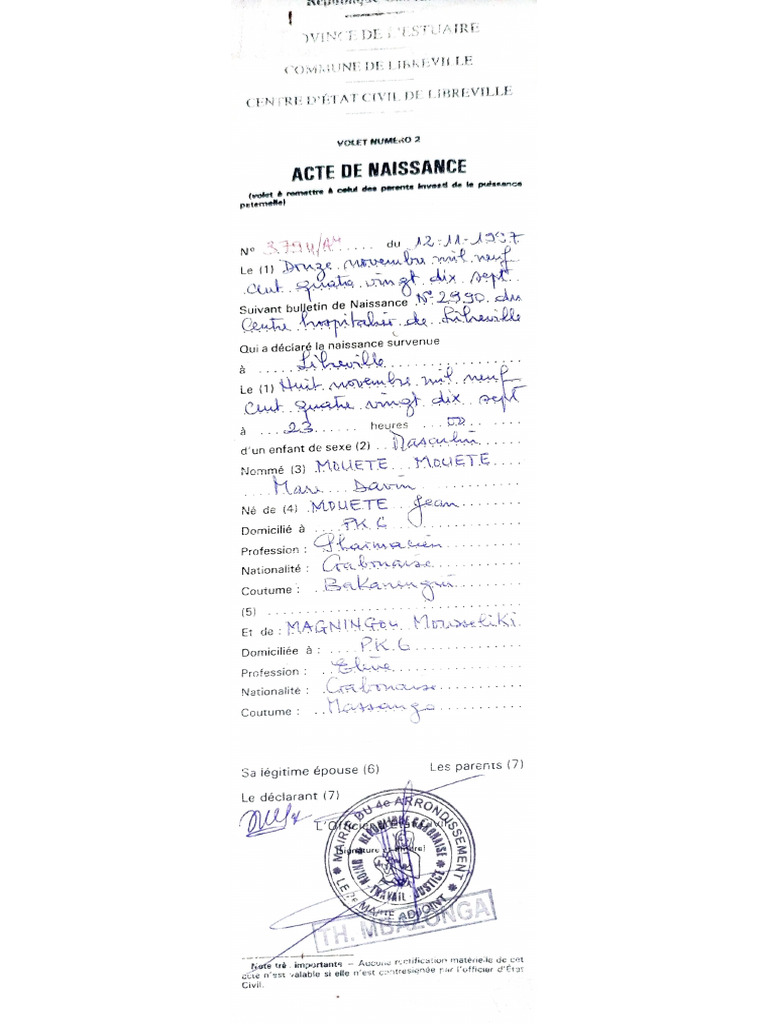 PROVINCE DE L'ESTUAIRE
COMMUNE DE LIBREVILLE
CENTRE D'ÉTAT CIVIL DE LIBREVILLE
VOLET NUMERO 2
ACTE DE NAISSANCE
(volet à remettre à celui des parents investi de la puissance
paternelle)
N° 3794/A4 du 12-11-1997
Le (1) Douze novembre mil neuf
cent quatre vingt dix sept
Suivant bulletin de Naissance N° 2990 du
Centre hospitalier de Libreville
Qui a déclaré la naissance survenue
à Libreville
Le (1) Huit novembre mil neuf
cent quatre vingt dix sept
à 23 heures
d'un enfant de sexe (2) Masculin
Nommé (3) MOUETE MOUETE
Marc Davin
Né de (4) MOUETE Jean
Domicilié à PK 6
Profession : Pharmacien
Nationalité : Gabonaise
Coutume :
(5)
Et de : MAGNINGOU Mousseliki
Domiciliée à : P.K.6
Profession : Elève
Nationalité : Gabonaise
Coutume : Massango
Sa légitime épouse (6) Les parents (7)
Le déclarant (7)
L'Officier d'État Civil
MAIRIE DU 4e ARRONDISSEMENT
REPUBLIQUE GABONAISE
UNION - TRAVAIL - JUSTICE
LE 2e MAIRE ADJOINT
TH. MBALONGA
Note très importante – Aucune rectification matérielle de cet
acte n'est valable si elle n'est contresignée par l'officier d'État
Civil.